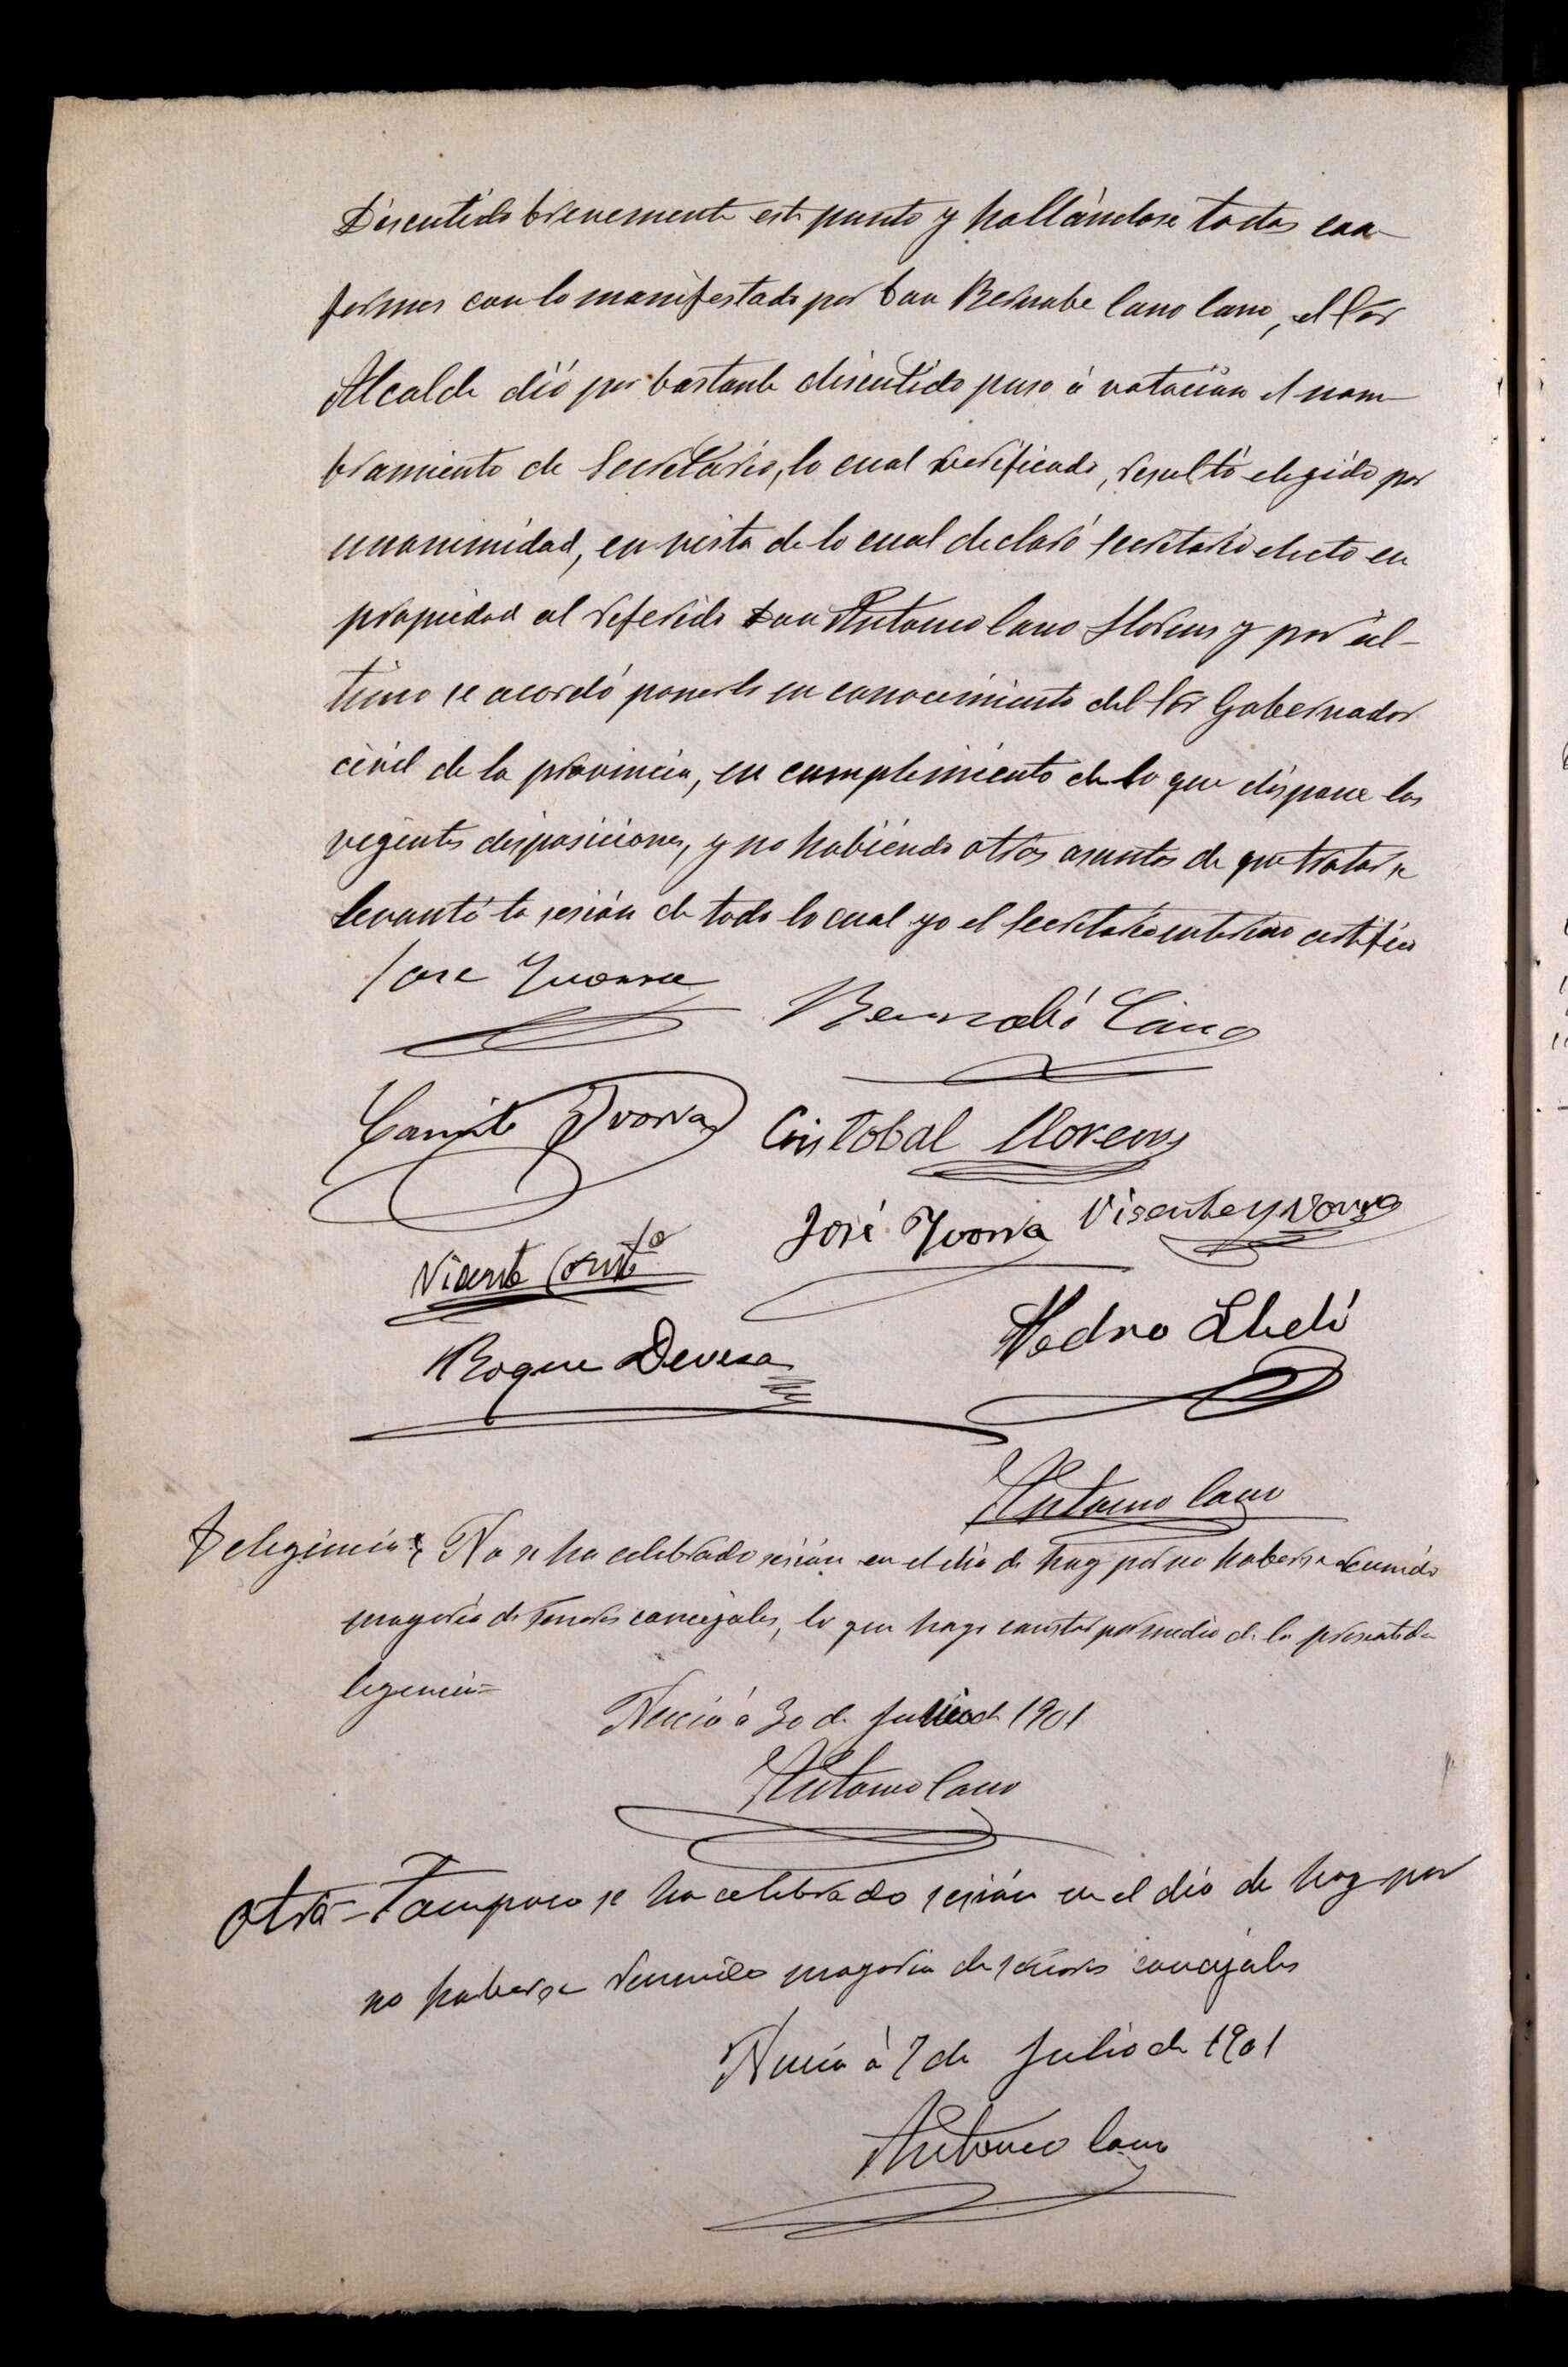 Discutido brevemente este punto y hallándose todos con-
formes con lo manifestado por Don Bernabe Cano Cano, el Sor
Alcalde dió por bastante discutido puso á votación el nom-
bramiento de Secretario, lo cual verificado, resultó elegido por
unanimidad, en vista de lo cual declaró Secretario electo en
propiedad al referido Don Antonio Cano Llorens y por úl-
timo se acordó ponerlo en conocimiento del Sor Gobernador
civil de la provincia, en cumplimiento de lo que dispone las
vigentes disposiciones, y no habiendo otros asuntos de que tratar se
levantó la sesión de todo lo cual yo el Secretario interino certifico
Jose Yvorra
Bernabé Cano
Camilo Yvorra Cristobal Llorens
José Yvorra Visente Yvorra
Vicente
Roque Devesa
Pedro
Antonio Cano
Deligencia No se ha celebrado sesión en el dia de hoy por no haberse reunido
mayoria de Señores concejales, lo que hago constar por medio de la presente de-
ligencia=
Nucia á 30 de Junio de 1901
Antonio Cano
Otra - Tampoco se ha celebrado sesión en el dia de hoy por
no haberse reunido mayoria de señores concejales
Nucia á 7 de Julio de 1901
Antonio Cano